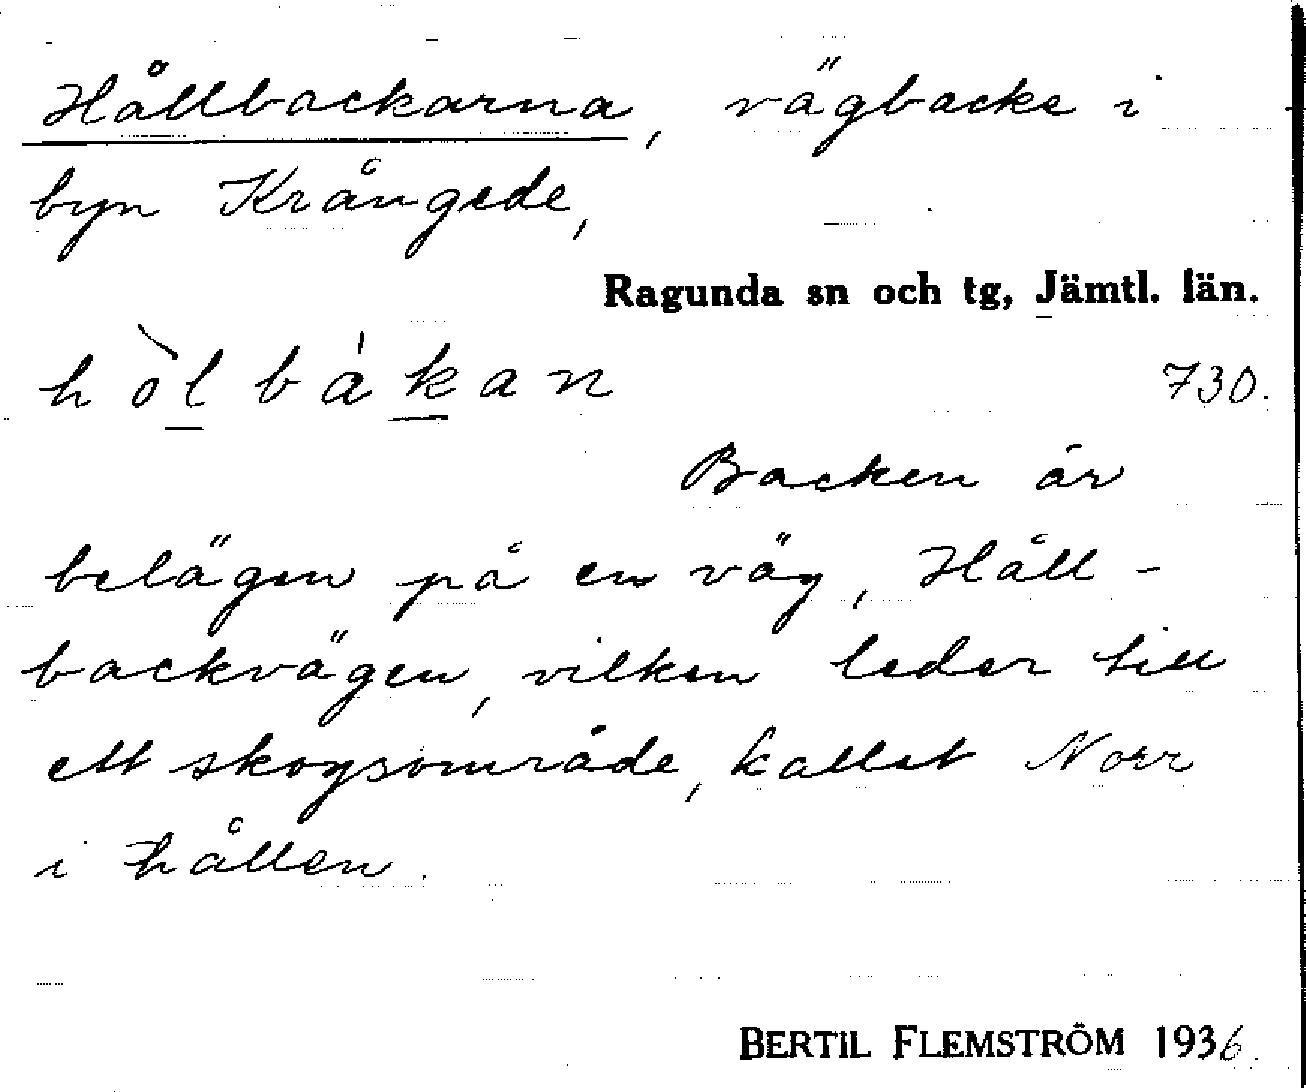 Hållbackarna, vägbacke i
byn Krångede,
Ragunda sn och tg, Jämtl. län.
hòlbákan 730.
Backen är
belägen på en väg, Håll-
backvägen, vilken leder till
ett skogsområde, kallat Norr
i hållen.
BERTIL FLEMSTRÖM 1936.